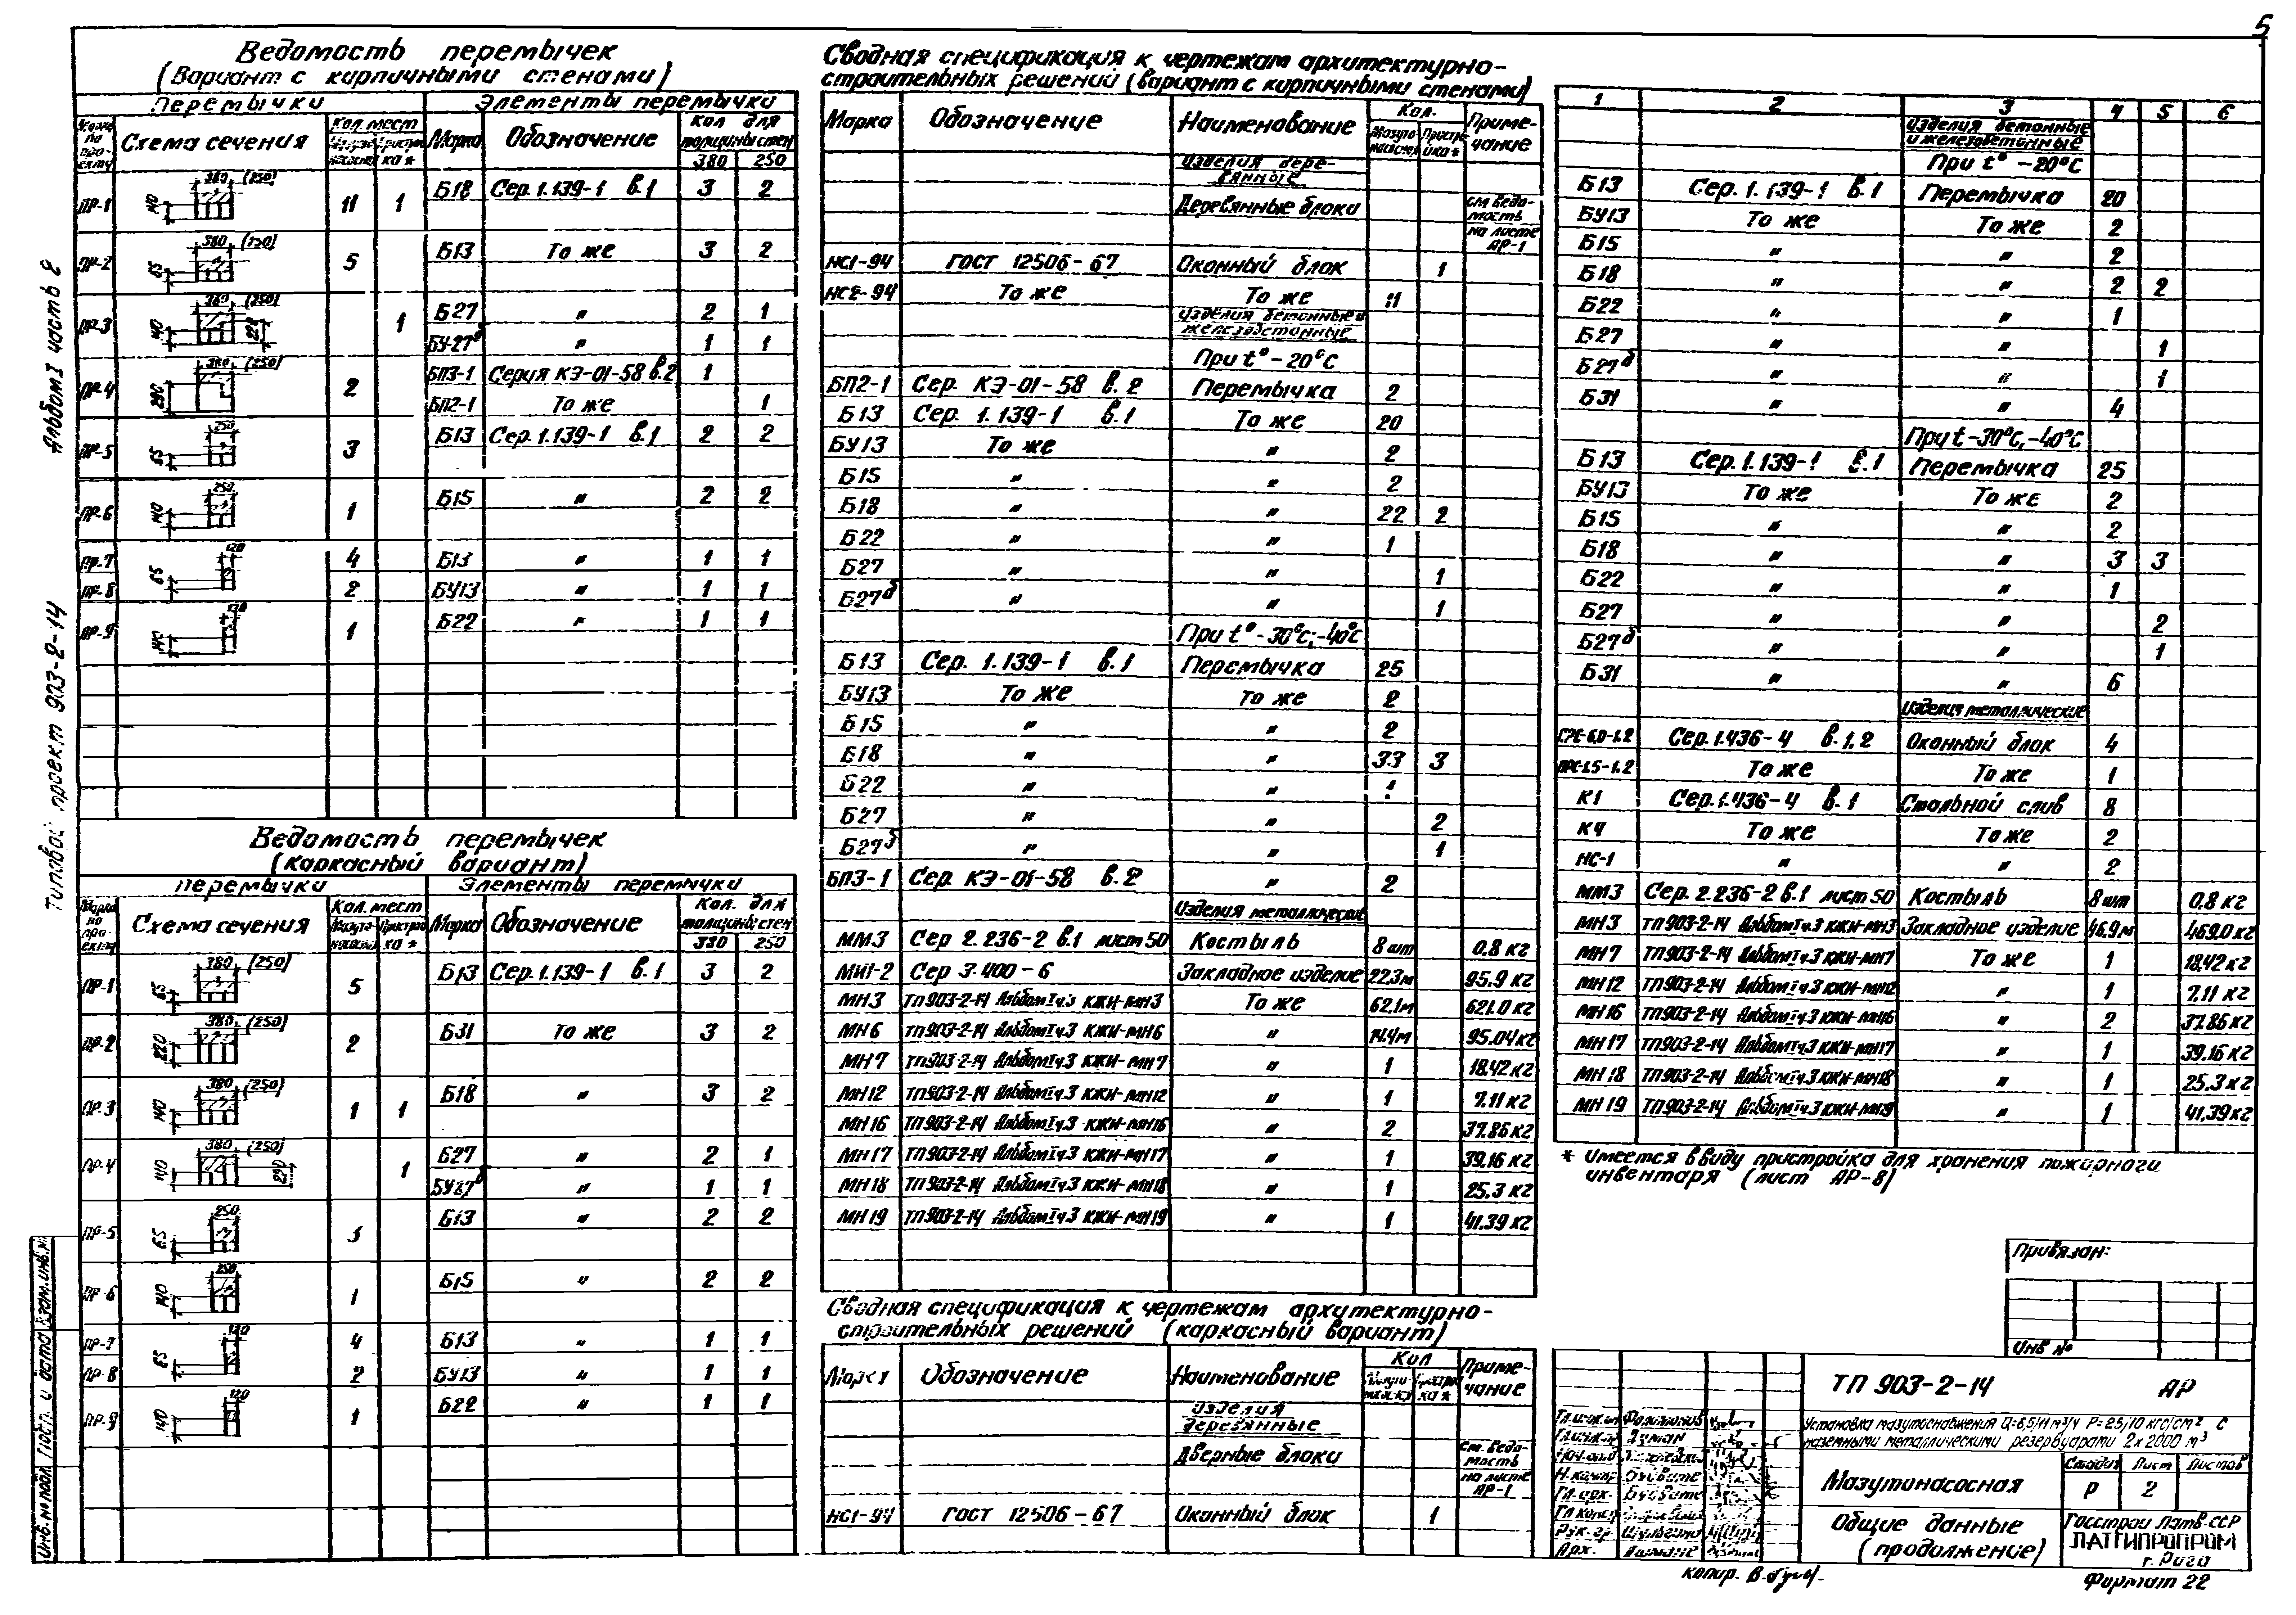 5
Альбом I часть 2
Типовой проект 903-2-14
Ведомость перемычек
(Вариант с кирпичными стенами)
Перемычки Элементы перемычки
Марка по проекту Схема сечения Кол. мест Марка Обозначение Кол для толщины стен
Мазутонасосная Пристройка * 380 250
ПР-1 380 (250) 140 11 1 Б18 Сер. 1.139-1 в.1 3 2
ПР-2 380 (250) 65 5 Б13 То же 3 2
ПР-3 380 (250) 140 220 1 Б27 " 2 1
БУ-27б " 1 1
ПР-4 380 (250) 290 2 БП3-1 Серия КЭ-01-58 в.2 1
БП2-1 То же 1
ПР-5 250 65 3 Б13 Сер. 1.139-1 в.1 2 2
ПР-6 250 140 1 Б15 " 2 2
ПР-7 120 65 4 Б13 " 1 1
ПР-8 2 БУ13 " 1 1
ПР-9 120 140 1 Б22 " 1 1
Ведомость перемычек
(каркасный вариант)
Перемычки Элементы перемычки
Марка по проекту Схема сечения Кол. мест Марка Обозначение Кол. для толщины стен
Мазутонасосная Пристройка * 380 250
ПР-1 380 (250) 65 5 Б13 Сер. 1.139-1 в.1 3 2
ПР-2 380 (250) 220 2 Б31 То же 3 2
ПР-3 380 (250) 140 1 1 Б18 " 3 2
ПР-4 380 (250) 140 290 1 Б27 " 2 1
БУ27б " 1 1
ПР-5 250 65 3 Б13 " 2 2
ПР-6 250 140 1 Б15 " 2 2
ПР-7 120 65 4 Б13 " 1 1
ПР-8 2 БУ13 " 1 1
ПР-9 120 140 1 Б22 " 1 1
Сводная спецификация к чертежам архитектурно-
строительных решений (вариант с кирпичными стенами)
Марка Обозначение Наименование Кол. Примечание
Мазутонасосная Пристройка *
Изделия деревянные
Деревянные блоки см ведомость на листе АР-1
НС1-94 ГОСТ 12506-67 Оконный блок 1
НС2-94 То же То же 11
Изделия бетонные и железобетонные
При t° -20°С
БП2-1 Сер. КЭ-01-58 в.2 Перемычка 2
Б13 Сер. 1.139-1 в.1 То же 20
БУ13 То же " 2
Б15 " " 2
Б18 " " 22 2
Б22 " " 1
Б27 " " 1
Б27б " " 1
При t° -30°С; -40°С
Б13 Сер. 1.139-1 в.1 Перемычка 25
БУ13 То же То же 2
Б15 " " 2
Б18 " " 33 3
Б22 " " 1
Б27 " " 2
Б27б " " 1
БП3-1 Сер. КЭ-01-58 в.2 " 2
Изделия металлические
ММ3 Сер 2.236-2 в.1 лист 50 Костыль 8 шт 0.8 кг
МИ1-2 Сер 3.400-6 Закладное изделие 22,3м 95.9 кг
МН3 ТП903-2-14 Альбом I ч.3 КЖИ-МН3 То же 62.1м 621.0 кг
МН6 ТП903-2-14 Альбом I ч.3 КЖИ-МН6 " 14.4м 95.04 кг
МН7 ТП903-2-14 Альбом I ч.3 КЖИ-МН7 " 1 18.42 кг
МН12 ТП903-2-14 Альбом I ч.3 КЖИ-МН12 " 1 7.11 кг
МН16 ТП903-2-14 Альбом I ч.3 КЖИ-МН16 " 2 37.86 кг
МН17 ТП903-2-14 Альбом I ч.3 КЖИ-МН17 " 1 39.16 кг
МН18 ТП903-2-14 Альбом I ч.3 КЖИ-МН18 " 1 25.3 кг
МН19 ТП903-2-14 Альбом I ч.3 КЖИ-МН19 " 1 41.39 кг
Сводная спецификация к чертежам архутектурно-
строительных решений (каркасный вариант)
Марка Обозначение Наименование Кол Примечание
Изделия деревянные
Дверные блоки см. ведомость на листе АР-1
НС1-94 ГОСТ 12506-67 Оконный блок 1
1 2 3 4 5 6
Изделия бетонные и железобетонные
При t° -20°С
Б13 Сер. 1.139-1 в.1 Перемычка 20
БУ13 То же То же 2
Б15 " " 2
Б18 " " 2 2
Б22 " " 1
Б27 " " 1
Б27б " " 1
Б31 " " 4
При t -30°С, -40°С
Б13 Сер. 1.139-1 в.1 Перемычка 25
БУ13 То же То же 2
Б15 " " 2
Б18 " " 3 3
Б22 " " 1
Б27 " " 2
Б27б " " 1
Б31 " " 6
Изделия металлические
СРС-6.0-1.2 Сер. 1.436-4 в.1,2 Оконный блок 4
ПРС-1.5-1.2 То же То же 1
К1 Сер. 1.436-4 в.1 Стальной слив 8
К4 То же То же 2
НС-1 " " 2
ММ3 Сер. 2.236-2 в.1 лист 50 Костыль 8 шт 0,8 кг
МН3 ТП903-2-14 Альбом I ч.3 КЖИ-МН3 Закладное изделие 46,9м 469.0 кг
МН7 ТП903-2-14 Альбом I ч.3 КЖИ-МН7 То же 1 18,42 кг
МН12 ТП903-2-14 Альбом I ч.3 КЖИ-МН12 " 1 7.11 кг
МН16 ТП903-2-14 Альбом I ч.3 КЖИ-МН16 " 2 37.86 кг
МН17 ТП903-2-14 Альбом I ч.3 КЖИ-МН17 " 1 39.16 кг
МН18 ТП903-2-14 Альбом I ч.3 КЖИ-МН18 " 1 25.3 кг
МН19 ТП903-2-14 Альбом I ч.3 КЖИ-МН19 " 1 41,39 кг
* Имеется ввиду пристройка для хранения пожарного
инвентаря (лист АР-8)
Привязан:
Инв №
ТП 903-2-14 АР
Установка мазутоснабжения Q=6,5/11 м³/ч Р=25/10 кгс/см² с
наземными металлическими резервуарами 2х2000 м³
Мазутонасосная
Стадия Лист Листов
Р 2
Общие данные
(продолжение)
Госстрой Латв.ССР
ЛАТГИПРОПРОМ
г. Рига
Гл.арх.
Рук. гр.
Арх.
Инв.№ подл. Подп. и дата Взам.инв.№
копир.
Формат 22